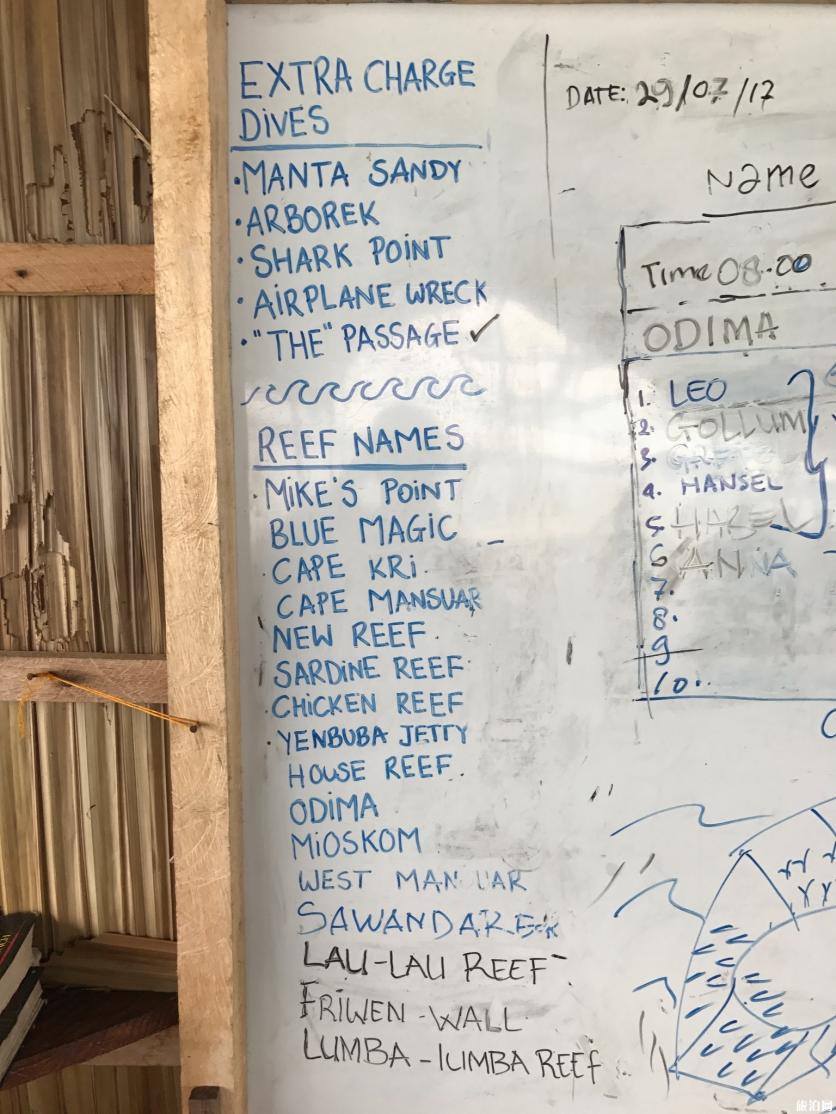 EXTRA CHARGE
DIVES
·MANTA SANDY
·ARBOREK
·SHARK POINT
·AIRPLANE WRECK
·"THE" PASSAGE ✓
REEF NAMES
·MIKE'S POINT
BLUE MAGIC
·CAPE KRI
CAPE MANSUAR
NEW REEF
SARDINE REEF
·CHICKEN REEF
·YENBUBA JETTY
HOUSE REEF
ODIMA
MIOSKOM
WEST
SAWANDAREK
LAU-LAU REEF
FRIWEN-WALL
LUMBA-LUMBA REEF
DATE: 29/07/17
Name
Time 08.00
ODIMA
1. LEO
2. GOLLUM
3.
4. HANSEL
5.
6 ANNA
7.
8.
9
10.
旅泊网